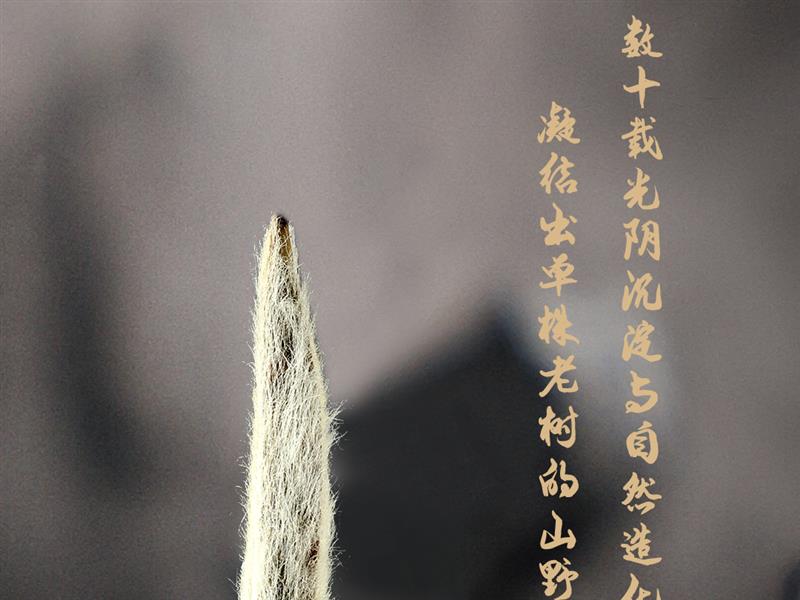 数十载光阴沉淀与自然造化
凝结出单株老树的山野